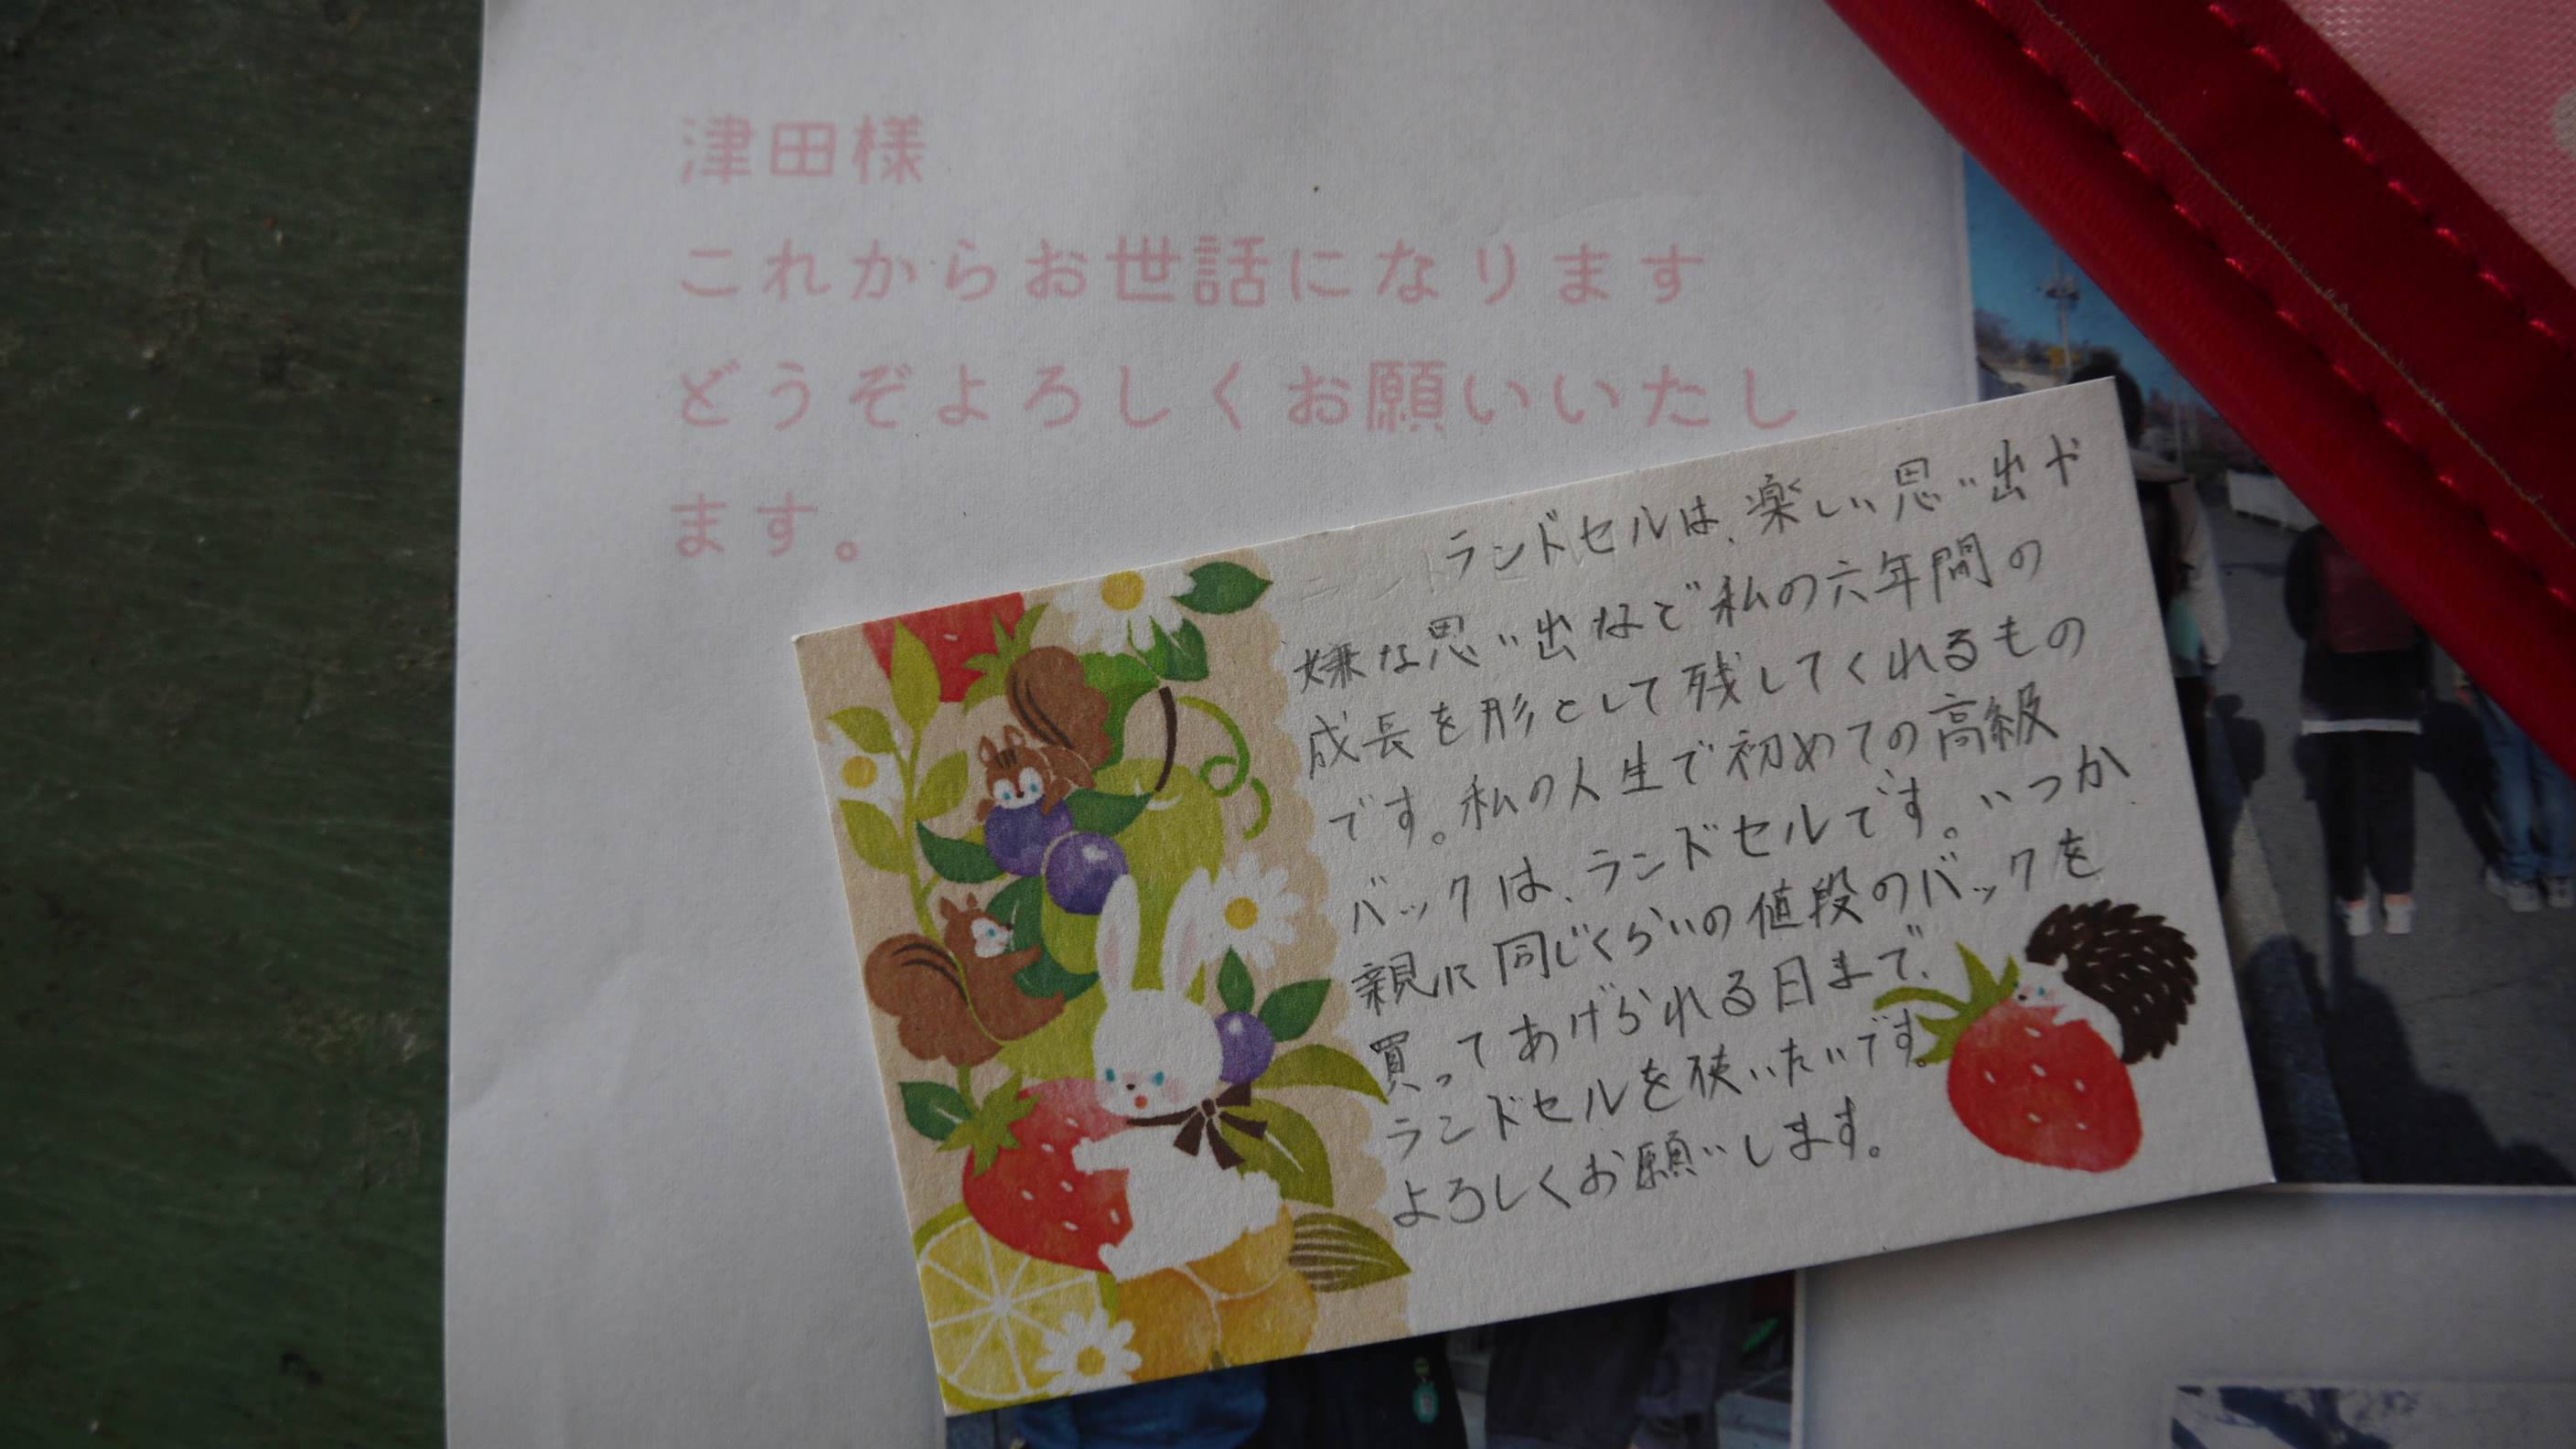 津田様
これからお世話になります
どうぞよろしくお願いいたし
ます。
ランドセルは、楽しい思い出や
嫌な思い出など私の六年間の
成長を形として残してくれるもの
です。私の人生で初めての高級
バックは、ランドセルです。いつか、
親に同じくらいの値段のバックを
買ってあげられる日まで、
ランドセルを使いたいです。
よろしくお願いします。